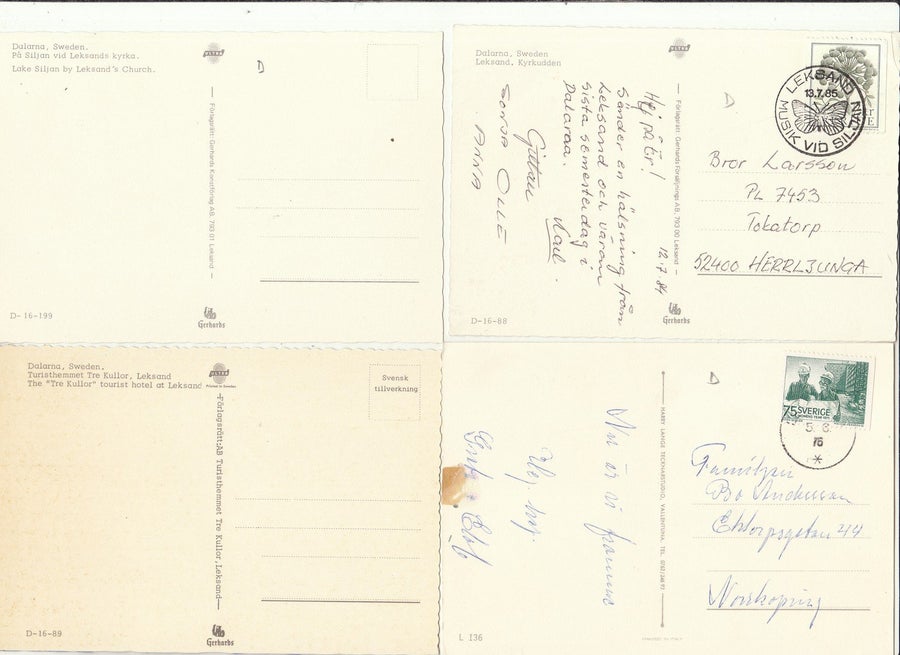 Dalarna, Sweden.
På Siljan vid Leksands kyrka.
Lake Siljan by Leksand's Church.
ULTRA
D
Förlagsrätt: Gerhards Konstförlag AB, 793 01 Leksand
D-16-199
Gerhards
Dalarna, Sweden
Leksand. Kyrkudden
ULTRA
D
Hej
Sänder en hälsning från
Leksand och våran
sista semesterdag i
Dalarna.
12.7.84
SONJA OLLE
ANNA
Förlagsrätt: Gerhards Försäljnings AB, 793 00 Leksand
LEKSAND
13.7.85
MUSIK VID SILJAN
Bror Larsson
PL 7453
Tokatorp
52400 HERRLJUNGA
D-16-88
Gerhards
Dalarna, Sweden.
Turisthemmet Tre Kullor, Leksand
The "Tre Kullor" tourist hotel at Leksand
ULTRA
Printed in Sweden
Svensk
tillverkning
Förlagsrätt: AB Turisthemmet Tre Kullor, Leksand
D-16-89
Gerhards
Nu är vi framme
HARRY LANGE TECKNARSTUDIO, VALLENTUNA. TEL.
D
75 SVERIGE
5.8.
76
Familjen
Bo Andersson
44
Norrköping
L 136
PRINTED IN ITALY